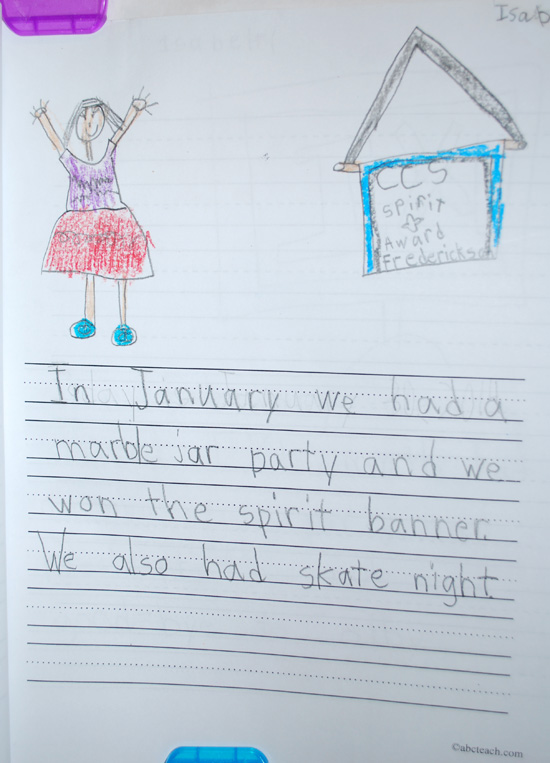 Isab
CCS
Spirit
Award
Frederickson
In January we had a
marble jar party and we
won the spirit banner.
We also had skate night
©abcteach.com